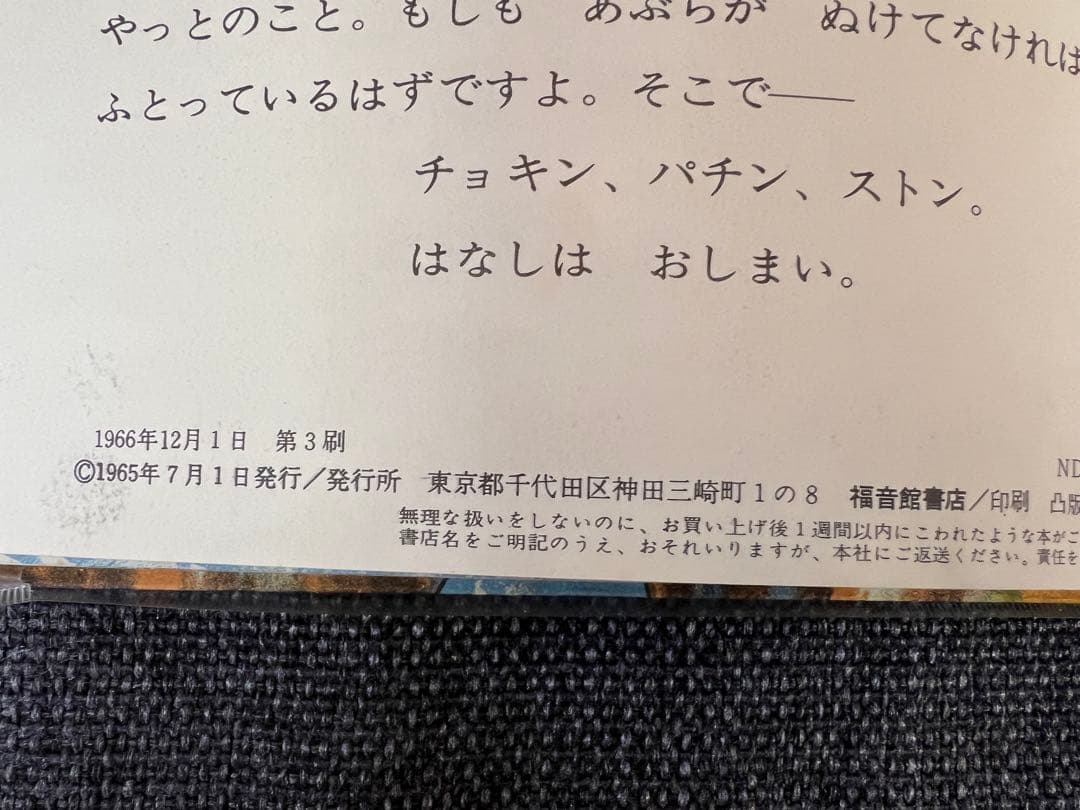 やっとのこと。もしも　あぶらが　ぬけてなければ
ふとっているはずですよ。そこで——
チョキン、パチン、ストン。
はなしは　おしまい。
1966年12月1日　第3刷
©1965年7月1日発行／発行所　東京都千代田区神田三崎町1の8　福音館書店／印刷　凸版
ND
無理な扱いをしないのに、お買い上げ後1週間以内にこわれたような本がご
書店名をご明記のうえ、おそれいりますが、本社にご返送ください。責任を